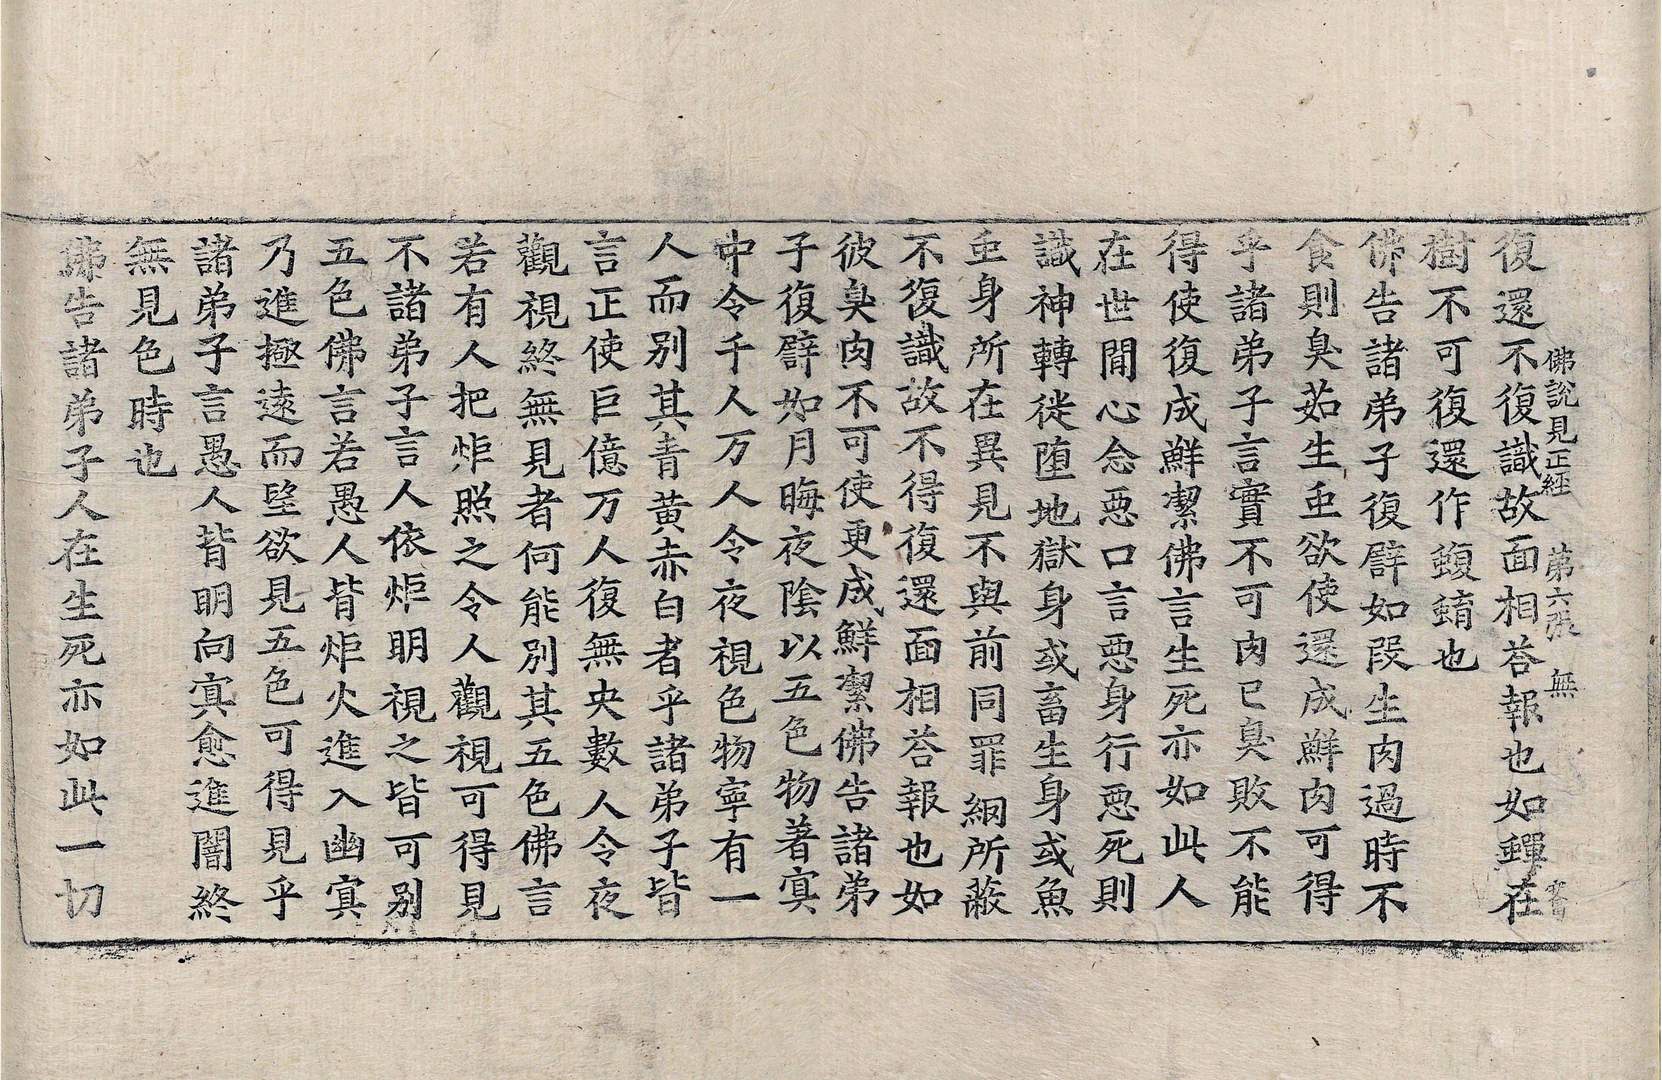 佛說見正經 第六張 無
復還不復識故面相荅報也如蟬在
樹不可復還作蝮蜟也
佛告諸弟子復譬如段生肉過時不
食則臭茹生䖝欲使還成鮮肉可得
乎諸弟子言實不可肉已臭敗不能
得使復成鮮潔佛言生死亦如此人
在世間心念惡口言惡身行惡死則
識神轉徙墮地獄身或畜生身或魚
䖝身所在異見不與前同罪網所蔽
不復識故不得復還面相荅報也如
彼臭肉不可使更成鮮潔佛告諸弟
子復譬如月晦夜陰以五色物著冥
中令千人万人令夜視色物寧有一
人而別其青黃赤白者乎諸弟子皆
言正使巨億万人復無央數人令夜
觀視終無見者何能別其五色佛言
若有人把炬照之令人觀視可得見
不諸弟子言人依炬明視之皆可別
五色佛言若愚人背炬火進入幽冥
乃進極遠而望欲見五色可得見乎
諸弟子言愚人背明向冥愈進闇終
無見色時也
佛告諸弟子人在生死亦如此一切